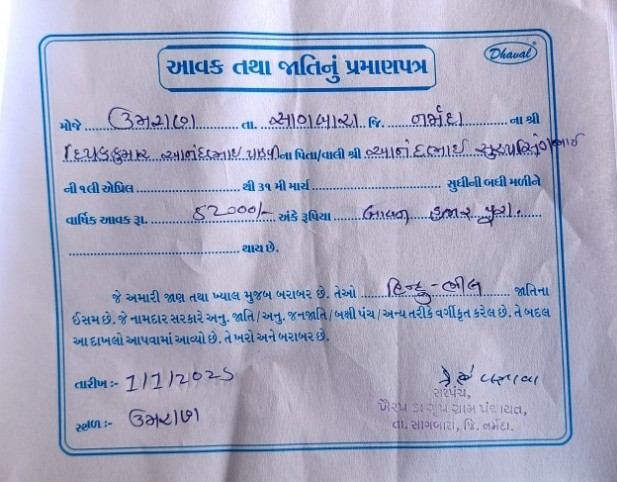 Dhaval
આવક તથા જાતિનું પ્રમાણપત્ર
મોજે ઉમરાણ તા. સાગબારા જિ. નર્મદા ના શ્રી
આનંદભાઇ ના પિતા/વાલી શ્રી આનંદભાઇ
ની ૧લી એપ્રિલ થી ૩૧ મી માર્ચ સુધીની બધી મળીને
વાર્ષિક આવક રૂા. ૫૨૦૦૦/- અંકે રૂપિયા બાવન હજાર પુરા.
થાય છે.
જે અમારી જાણ તથા ખ્યાલ મુજબ બરાબર છે. તેઓ હિન્દુ-ભીલ જાતિના
ઈસમ છે. જે નામદાર સરકારે અનુ. જાતિ/અનુ. જનજાતિ/બક્ષી પંચ/અન્ય તરીકે વર્ગીકૃત કરેલ છે. તે બદલ
આ દાખલો આપવામાં આવ્યો છે. તે ખરો અને બરાબર છે.
તારીખ :- 1/1/2025
સરપંચ,
ગ્રુપ ગ્રામ પંચાયત,
સ્થળ :- ઉમરાણ
તા. સાગબારા, જિ. નર્મદા.